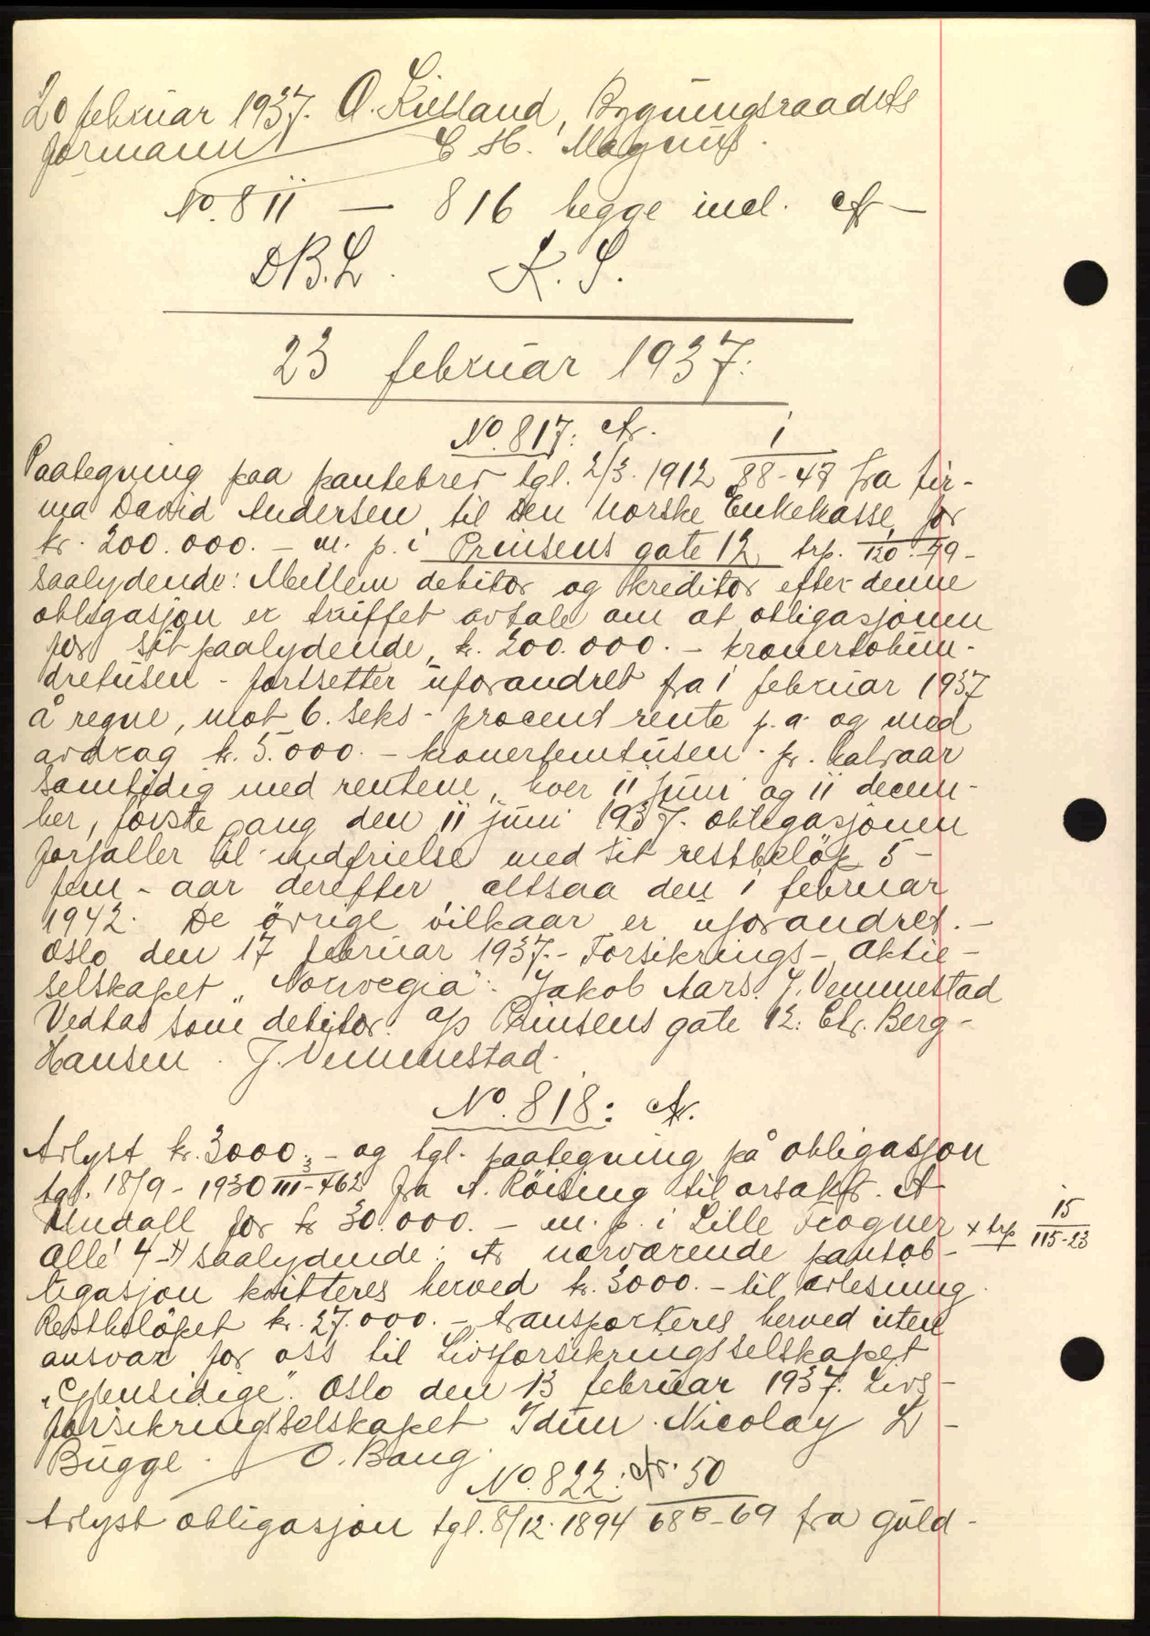 20 februar 1937. O. Kielland, Bygningsraadets
formann E H. Magnus.
No. 811 — 816 begge incl. Av —
DB.L. K. S.
23 februar 1937:
No. 817: Av. 1
Paategning paa pantebrev tgl. 2/3. 1912 88-48 fra fir-
ma David Andersen til Den norske Enkekasse for
kr. 200.000. – m. p. i Prinsens gate 12 trp. 120-79-
saalydende: Mellem debitor og kreditor efter denne
obligasjon er truffet avtale om at obligasjonen
for sit paalydende, kr. 200.000. – kronertohun-
dretusen - fortsetter uforandret fra 1 februar 1937
å regne, mot 6. seks - procent rente p. a. og med
avdrag kr. 5.000. – kronerfemtusen - pr. halvaar
samtidig med rentene, hver 11 juni og 11 decem-
ber, første gang den 11 juni 1937. obligasjonen
forfaller til indfrielse med sit restbeløp 5 –
fem - aar derefter altsaa den 1 februar
1942. De övrige vilkaar er uforandret. –
Oslo den 17 februar 1937. - Forsikrings - aktie -
selskapet „Norvegia". Jakob Aars. J. Vemmestad
Vedtas som debitor: a/s Prinsens gate 12: Chr. Berg -
Hansen. J. Vemmestad.
No. 818: Av.
Avlyst kr. 3000. – og tgl. paategning på obligasjon
tgl. 18/9 - 1930 3 III-462 fra A. Röising til orsakf. A
Undall for kr 30.000. – m. p. i Lille Frogner x trp 15
Allé 4 x) saalydende: Av nærværende pantob- 115-23
ligasjon kvitteres herved kr. 3000. – til avlesning.
Restbeløpet kr. 27.000. – transporteres herved uten
ansvar for oss til Livsforsikringsselskapet
„Gjensidige". Oslo den 13 februar 1937. Livs -
forsikringsselskapet Idun. Nicolay L -
Bugge. O. Bang.
No. 822: Av. 50
Avlyst obligasjon tgl. 8/12. 1894 68B-69 fra guld -